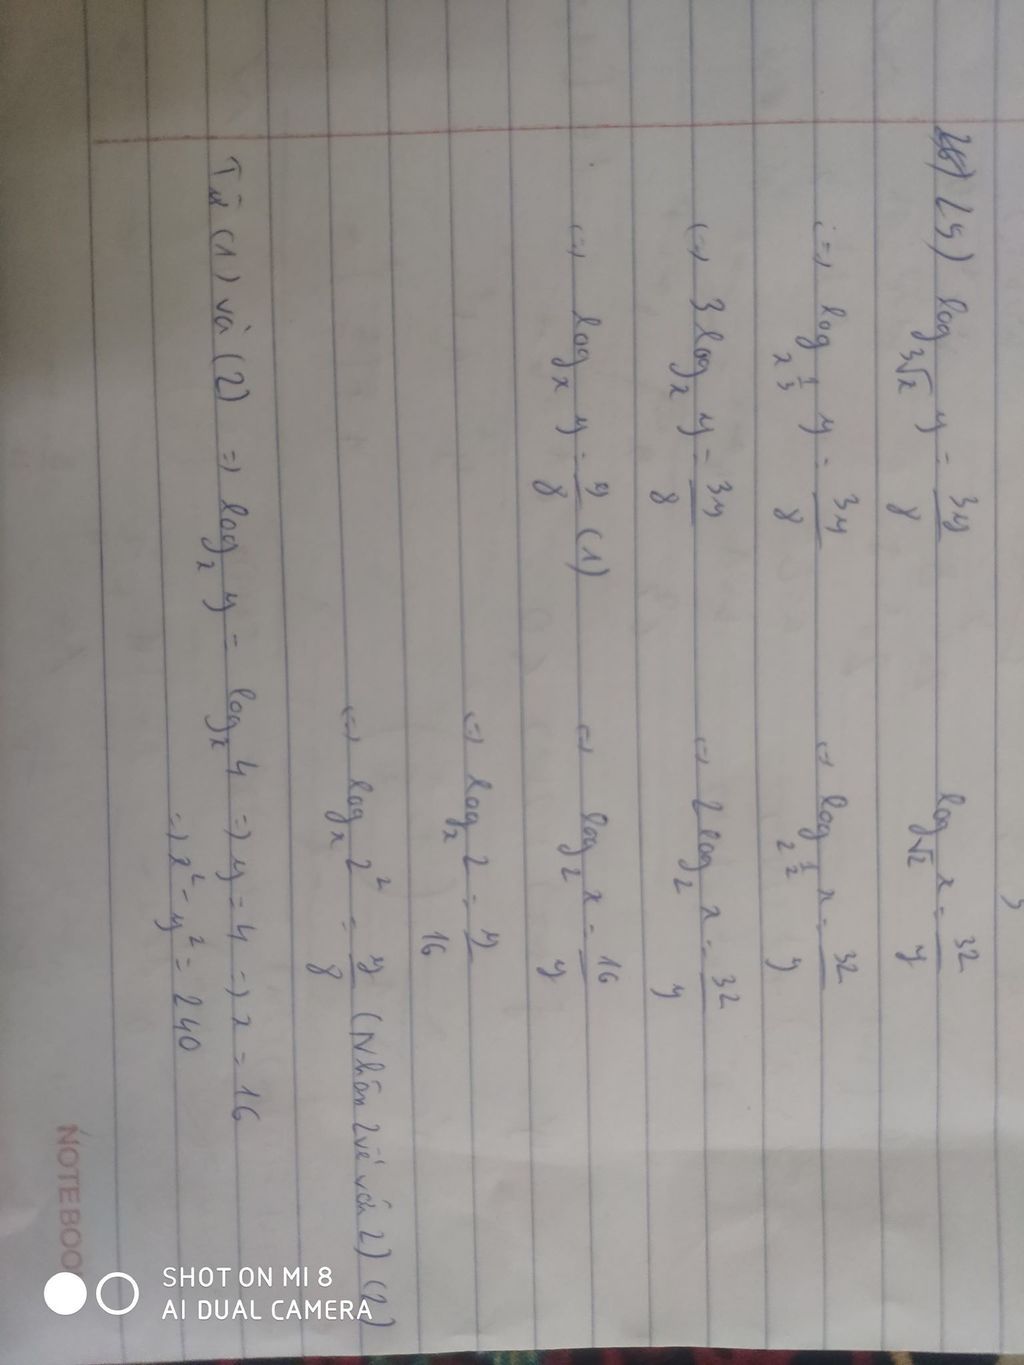 25) log_{3√x} y = 3y/8    log_{√2} x = 32/y
⇔ log_{x^{1/3}} y = 3y/8    ⇔ log_{2^{1/2}} x = 32/y
⇔ 3 log_x y = 3y/8    ⇔ 2 log_2 x = 32/y
⇔ log_x y = y/8 (1)    ⇔ log_2 x = 16/y
⇔ log_x 2 = y/16
⇔ log_x 2^2 = y/8 (Nhân 2 vế với 2) (2)
Từ (1) và (2) ⇒ log_x y = log_x 4 ⇒ y = 4 ⇒ x = 16
⇒ x^2 - y^2 = 240
NOTEBOO
SHOT ON MI 8
AI DUAL CAMERA